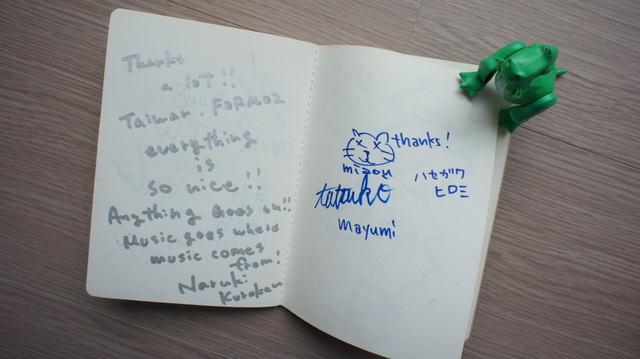 Thanks
a lot!!
Taiwan. FORMOZ
everything
is
so nice!!
Anything Goes on!!
Music goes where
music comes
from!
Naruki
Kurokawa
thanks!
mizou
tatsuko
mayumi
ハセガワ
ヒロミ